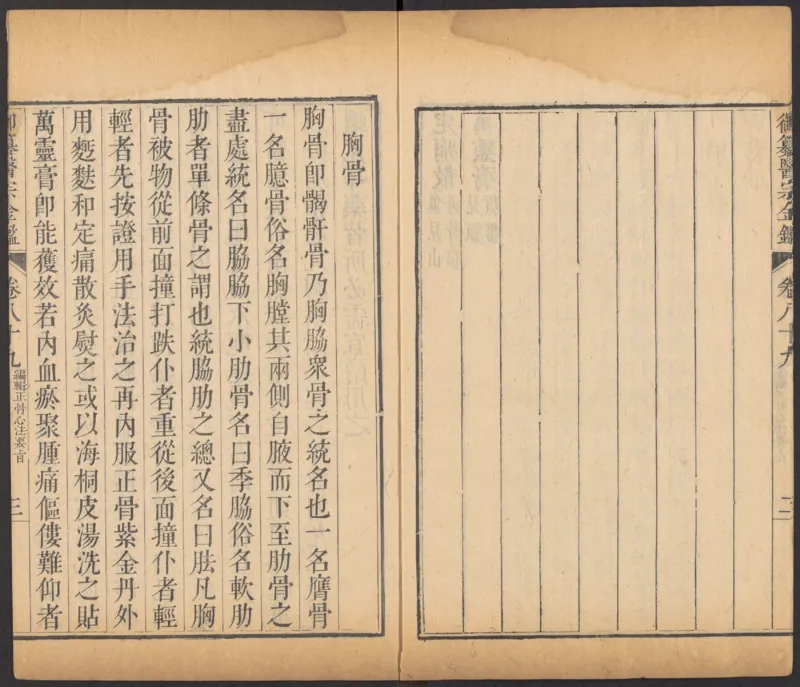 御纂醫宗金鑑
卷八十九
胸骨
胸骨卽䯏骬骨乃胸脇衆骨之統名也一名膺骨
一名臆骨俗名胸膛其兩側自腋而下至肋骨之
盡處統名曰脇脇下小肋骨名曰季脇俗名軟肋
肋者單條骨之謂也統脇肋之總又名曰胠凡胸
骨被物從前面撞打跌仆者重從後面撞仆者輕
輕者先按證用手法治之再內服正骨紫金丹外
用麪麩和定痛散灸熨之或以海桐皮湯洗之貼
萬靈膏卽能獲效若內血瘀聚腫痛傴僂難仰者
御纂醫宗金鑑
卷八十九
編輯正骨心法要旨
三